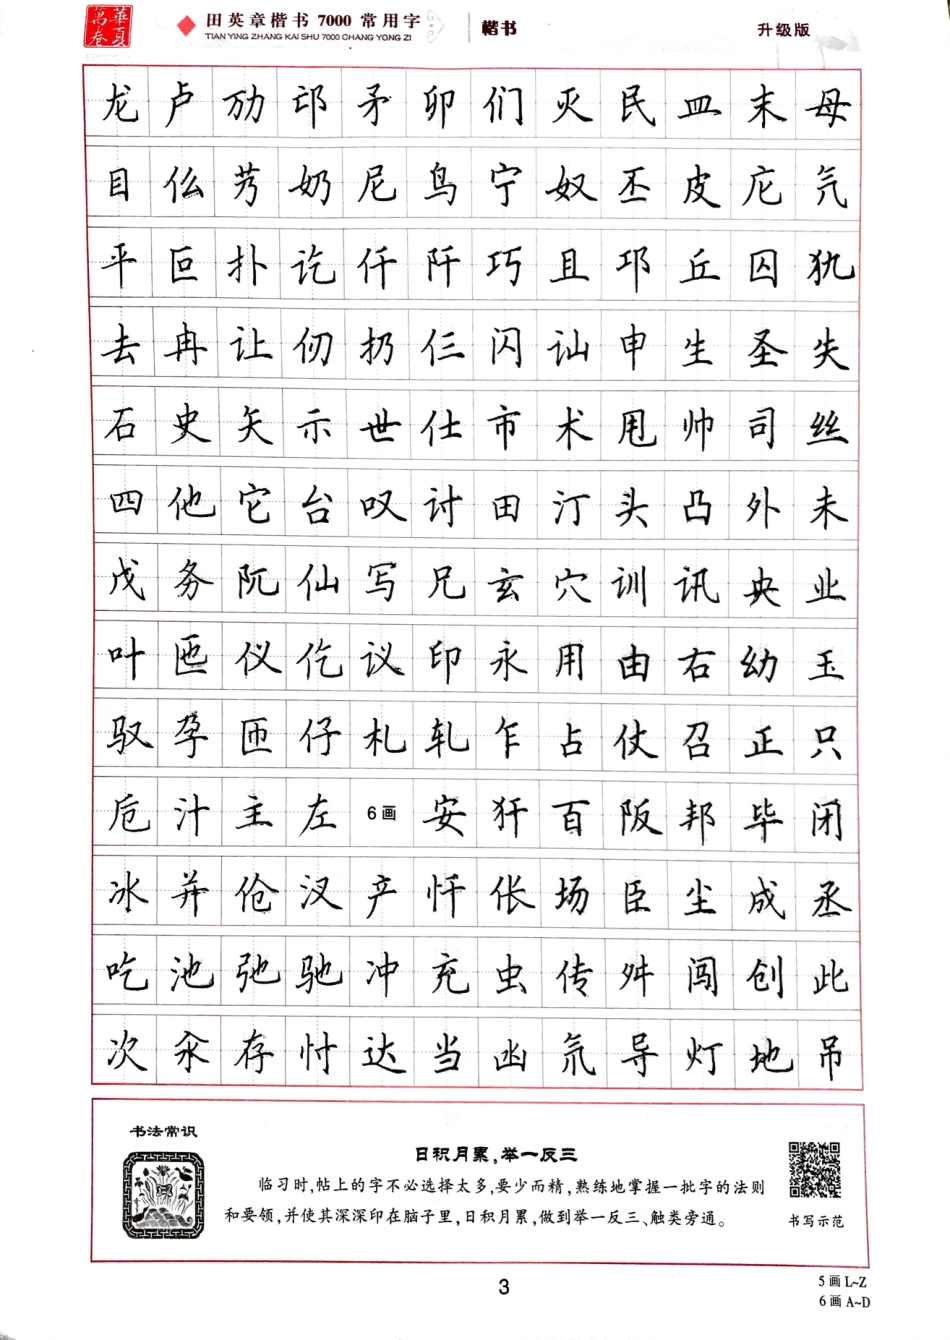 華夏萬卷
田英章楷书 7000 常用字
TIAN YING ZHANG KAI SHU 7000 CHANG YONG ZI
楷书
升级版
龙卢劢邙矛卯们灭民皿末母
目仫艿奶尼鸟宁奴丕皮庀氕
平叵扑讫仟阡巧且邛丘囚犰
去冉让仞扔仨闪讪申生圣失
石史矢示世仕市术甩帅司丝
四他它台叹讨田汀头凸外未
戊务阢仙写兄玄穴训讯央业
叶匜仪仡议印永用由右幼玉
驭孕匝仔札轧乍占仗召正只
卮汁主左 6画 安犴百阪邦毕闭
冰并伧汊产忏伥场臣尘成丞
吃池弛驰冲充虫传舛闯创此
次汆存忖达当凼氘导灯地吊
书法常识
日积月累,举一反三
临习时,帖上的字不必选择太多,要少而精,熟练地掌握一批字的法则
和要领,并使其深深印在脑子里,日积月累,做到举一反三、触类旁通。
书写示范
3
5画 L~Z
6画 A~D